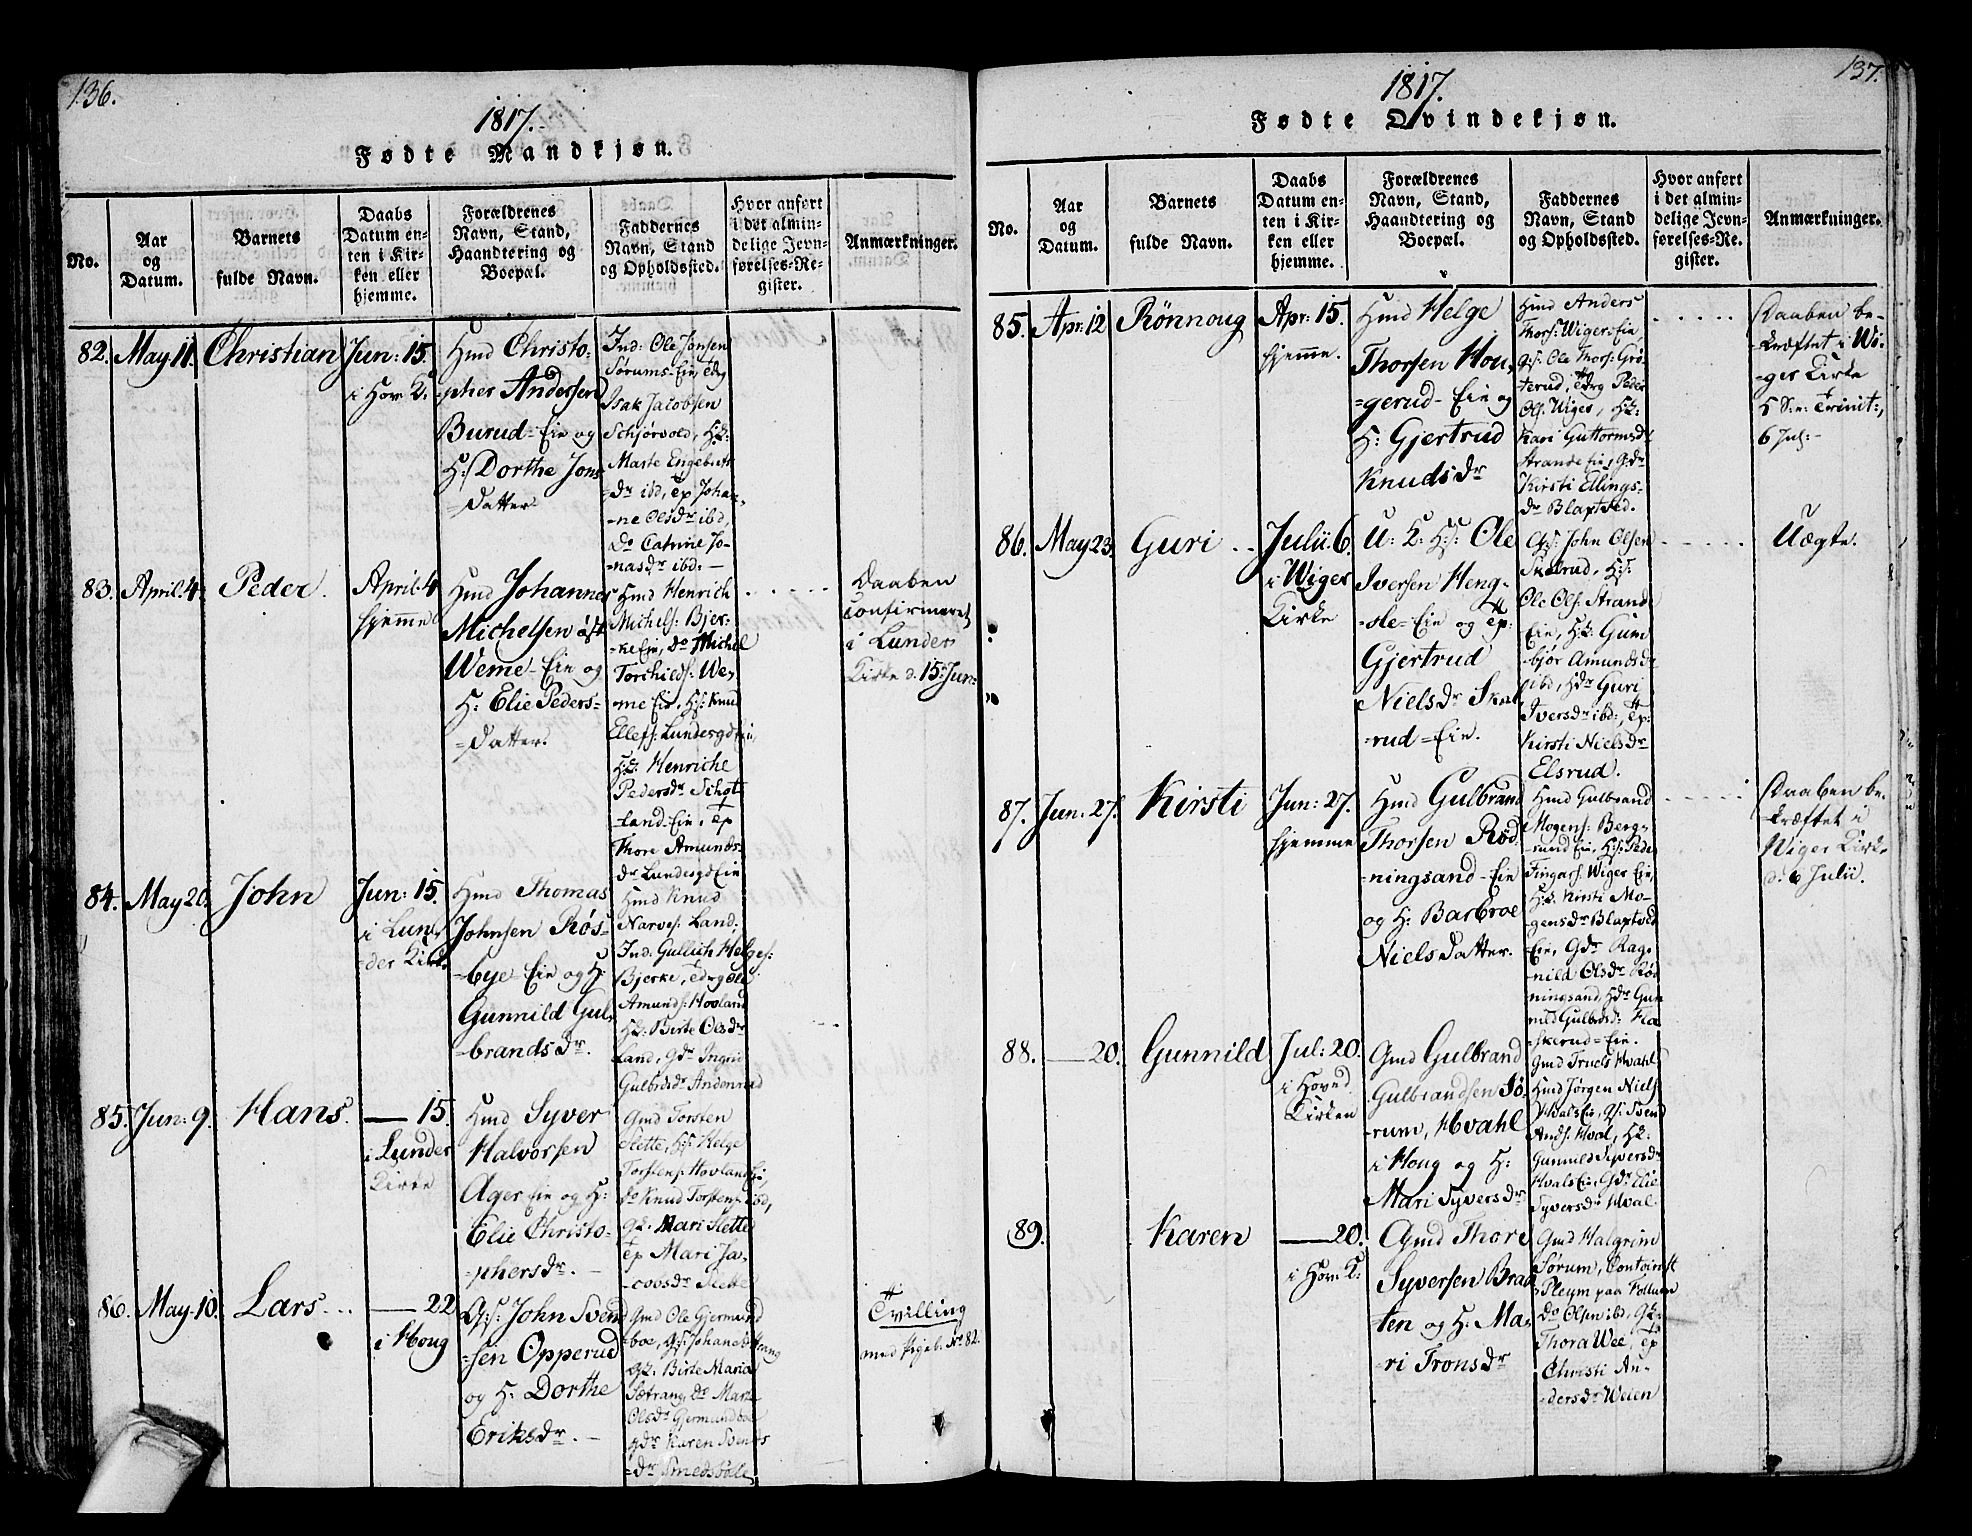 136.
1817.
Fødte Mandkjøn.
No.
Aar
og
Datum.
Barnets
fulde Navn.
Daabs
Datum en-
ten i Kir-
ken eller
hjemme.
Forældrenes
Navn, Stand,
Haandtering og
Boepæl.
Faddernes
Navn, Stand
og Opholdssted.
Hvor anført
i det almin-
delige Jevn-
førelses-Re-
gister.
Anmærkninger.
82.
May 11.
Christian
Jun: 15.
i Hov: K.
Hmd Christo-
pher Andersen
Burud-Eie og
H: Dorthe Jons
=datter
Ind: Ole Jonsen
Sørums-Eie, Edrg
Isak Jacobsen
Schjørvold, HK:
Marte Engebrets
=dr ibd, Ep Johan-
=ne Olsdr ibd,
do Catrine Jo-
=nasdr ibd: —
83.
April. 4.
Peder.
April. 4
hjemme
Hmd Johannes
Michelsen øst
Weme-Eie og
H: Elie Peders-
=datter.
Hmd Henrich
Michels: Bjer-
=ke Eie, do Michel
Torchilds: We-
=me Eie, HS: Knud
Ellefs: Lundesgd Eie,
HK: Henriche
Pedersdr Schot
=land-Eie, Ep
Thore Amunds-
dr Lundesgd Eie
Daaben
confirmeret
i Lunder
Kirke d. 15 Jun:
84.
May 20.
John
Jun: 15.
i Lun-
=der Kirke
Hmd Thomas
Johnsen Røs-
=bye-Eie og H:
Gunnild Gul-
=brandsdr.
Hmd Knud
Narves: Land,
Ind: Gullich Helges:
Bjerke, Edrg Ole
Amunds: Hovland
HK: Birte Olsdr
Land, gdr Ingrid
Gulbrdsdr
85.
Jun: 9.
Hans.
— 15.
i Lunder
Kirke
Hmd Syver
Halvorsen
Ager Eie og H:
Elie Christo-
=phersdr. —
Gmd Torsten
Slette, HS: Helge
Torstens: Hovland Eie,
do Knud Torstens: ibd,
GK. Mari Slette
Ep Mari Ja-
=cobsdr Slette
86.
May 10.
Lars ...
— 22
i Houg
GS: John Svend
=sen Opperud
og H: Dorthe
Eriksdr. —
Gmd Ole Gjermund
=boe, GS: Johan Sætrang
GK. Birte Maria
Sætrang, do Marte
Olsdr Germundboe
gdr Karen Svends
=dr Smedsbøle
Tvilling
med Pigeb. No 82.
137.
1817.
Fødte Qvindekjøn.
No.
Aar
og
Datum.
Barnets
fulde Navn.
Daabs
Datum en-
ten i Kir-
ken eller
hjemme.
Forældrenes
Navn, Stand,
Haandtering og
Boepæl.
Faddernes
Navn, Stand
og Opholdsted.
Hvor anført
i det almin-
delige Jevn-
førelses-Re-
gister.
Anmærkninger.
85.
Apr: 12
Rönnoug
Apr: 15.
hjemme.
Hmd Helge
Thorsen Hou-
=gerud-Eie og
H: Gjertrud
Knudsdr
Hmd Anders
Thors: Wigers Eie,
GS: Ole Thors: Grø-
terud, Edrg Peder
Ols. Wiger, HK:
Kari Guttormsdr
Strande Eie, Gdr
Kirsti Ellings-
dr Blaxtved.
Daaben be-
=kræftet i Wi-
=ger Kirke
5 S: e: Trinit:,
6 Jul: -
86.
May 23.
Guri ..
Julii. 6.
i Wiger
Kirke
U: K: HS: Ole
Iversen Heng-
=sle-Eie og Ep:
Gjertrud
Nielsdr Skol
=rud=Eie.
GS: John Olsen
Skolrud, HS:
Ole Ols: Strande
Eie, HK: Gum
=bjør Amundsdr
ibd, Hdr Guri
Iversdr ibd:, Ep:
Kirsti Nielsdr
Elsrud.
Uægte.
87.
Jun: 27.
Kirsti
Jun: 27.
hjemme
Hmd Gulbrand
Thorsen Rød-
=ningsand-Eie
og H: Barbroe
Nielsdatter.
Hmd Gulbrand
Mogens: Berg-
=mund Eie, HS: Peder
Fingars: Wiger Eie,
HK Kirsti Mo-
gensdr Blaxtved
Eie, Gdr Rag-
=nild Olsdr Rød
=ningsand, Hdr Gun
=nild Gulbrdsd: Fla
=skerud-Eie.
Daaben be-
=kræftet i
Wiger Kirke
d. 6 Julii.
88.
— 20.
Gunnild
Jul: 20.
i Hoved
Kirken
Gmd Gulbrand
Gulbrandsen Sø
=rum, Hvahl
i Houg og H:
Mari Syversdr
Gmd Truels Hvahl
Hmd Jørgen Niels:
Hvals Eie, GS: Svend
Ands: Hval, HK:
Gunnild Syversdr
Hvals Eie, Gdr Elie
Syversdr Hval.
89.
Karen
— 20.
i Hov: K:
Gmd Thore
Syversen Braa
=ten og H: Ma-
=ri Tronsdr
Gmd Halgrim
Sørum, Contoirist
Pleym paa Follum
do Olsen ibd, GK:
Thora Wee, Ep
Christi An-
=dersdr Weien